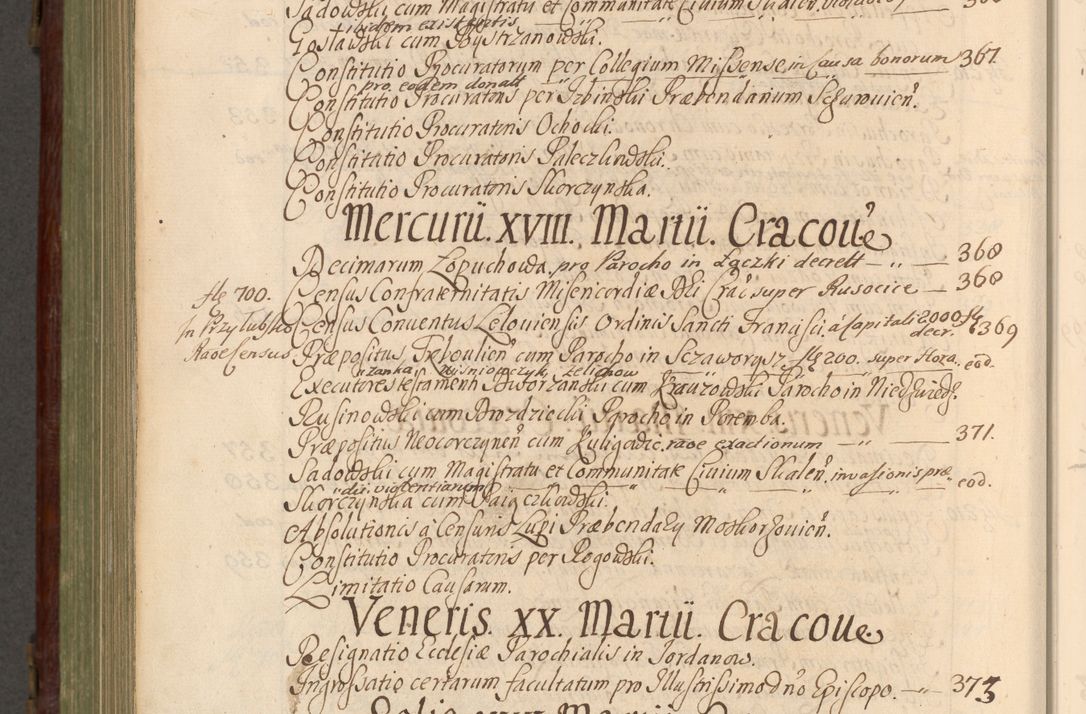 Sadowski cum Magistratu et Communitate Civium Skalen. violae
ibidem existentis
Gostawski cum Bystrzanowski.
Constitutio Procuratorum per Collegium Missense in Causa bonorum 367.
pro eodem donatt
Constitutio Procuratoris per Izbinski Præbendarium Sczurovien.
Constitutio Procuratoris Ochocki.
Constitutio Procuratoris Paleczkindski.
Constitutio Procuratoris Skorczynska.
Mercurii. XVIII. Martii. Cracoviæ
Decimarum Łopuchowa, pro Parocho in Łączki decrett — " — 368
flę 700. Census Confraternitatis Misericordiæ Dei Crac. super Rusocice — 368
in Przytubsko Census Conventus Leloviensis Ordinis Sancti Francisci, á Capitali 2000 fl. decr. 369
Raoe Census Præpositus Trboulien cum Parocho in Sczaworysz flę 200. super Hoza. eod.
zanka, Wisniowczyk, Zelichow
Executores testamenti Dworzanski cum Krauzowski Parocho in Niedzwiedz.
Rusinowski cum Drozdziecki Parocho in Poremba.
Præpositus Neocorczynen cum Kuligadic. raoe exactionum — " — 371.
Sadowski cum Magistratu et Communitate Civium Skalen. invasionis præ eod.
dii. violentiarum
Skorczynska cum Paigczkowski.
Absolutionis à Censuris Lupi Præbendarÿ Moskorzovien.
Constitutio Procuratoris per Rogowski.
Limitatio Causarum.
Veneris. XX. Martii. Cracoviæ
Resignatio Ecclesiæ Parochialis in Jordanow.
Ingrossatio certarum facultatum pro Illustrissimo dno Episcopo. — " — 373